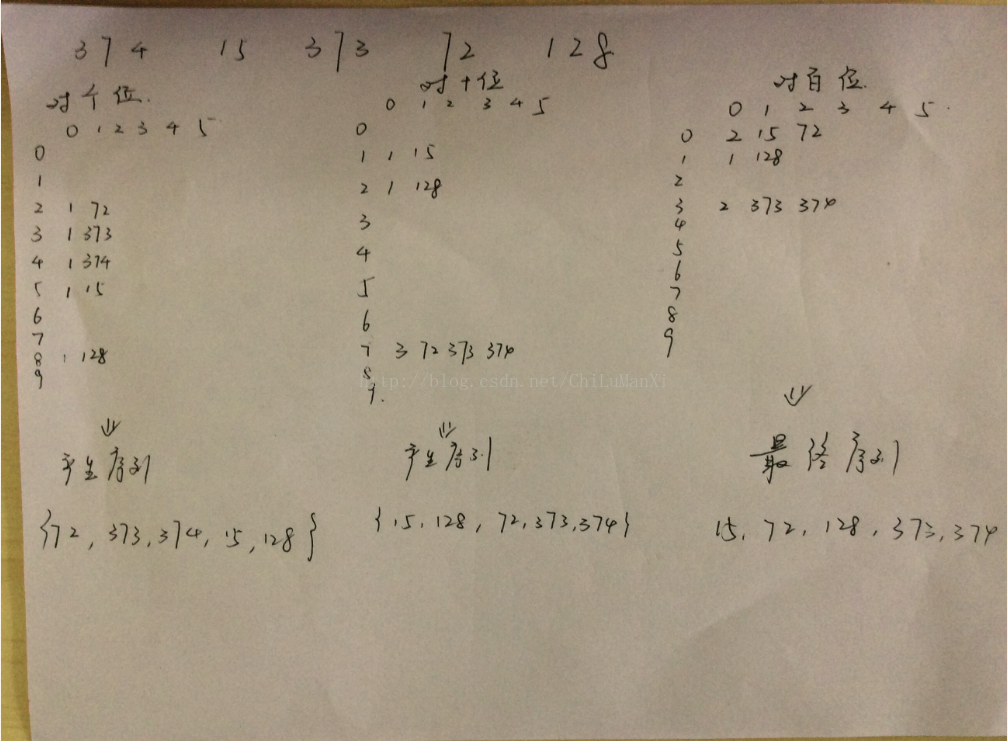 374 15 373 72 128
对个位.
0 1 2 3 4 5
0
1
2 1 72
3 1 373
4 1 374
5 1 15
6
7
8 1 128
9
⇓
产生序列
{72, 373, 374, 15, 128}
对十位
0 1 2 3 4 5
0
1 1 15
2 1 128
3
4
5
6
7 3 72 373 374
8
9.
⇓
产生序列
{15, 128, 72, 373, 374}
对百位
0 1 2 3 4 5.
0 2 15 72
1 1 128
2
3 2 373 374
4
5
6
7
8
9
⇓
最终序列
15, 72, 128, 373, 374
http://blog.csdn.net/ChiLuManXi